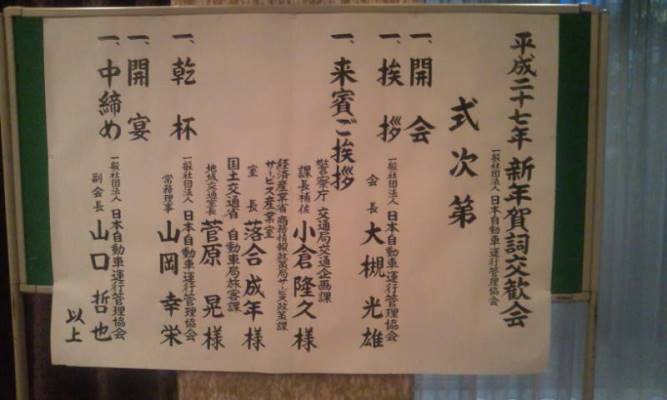 平成二十七年 新年賀詞交歓会
一般社団法人 日本自動車運行管理協会
式次第
一、開会
一、挨拶
一般社団法人 日本自動車運行管理協会
会長 大槻光雄
一、来賓ご挨拶
警察庁 交通局交通企画課
課長補佐 小倉隆久様
経済産業省 商務情報政策局サービス政策課
サービス産業室
室長 落合成年様
国土交通省 自動車局旅客課
地域交通室長 菅原晃様
一、乾杯
一般社団法人 日本自動車運行管理協会
常務理事 山岡幸栄
一、開宴
一、中締め
一般社団法人 日本自動車運行管理協会
副会長 山口哲也
以上